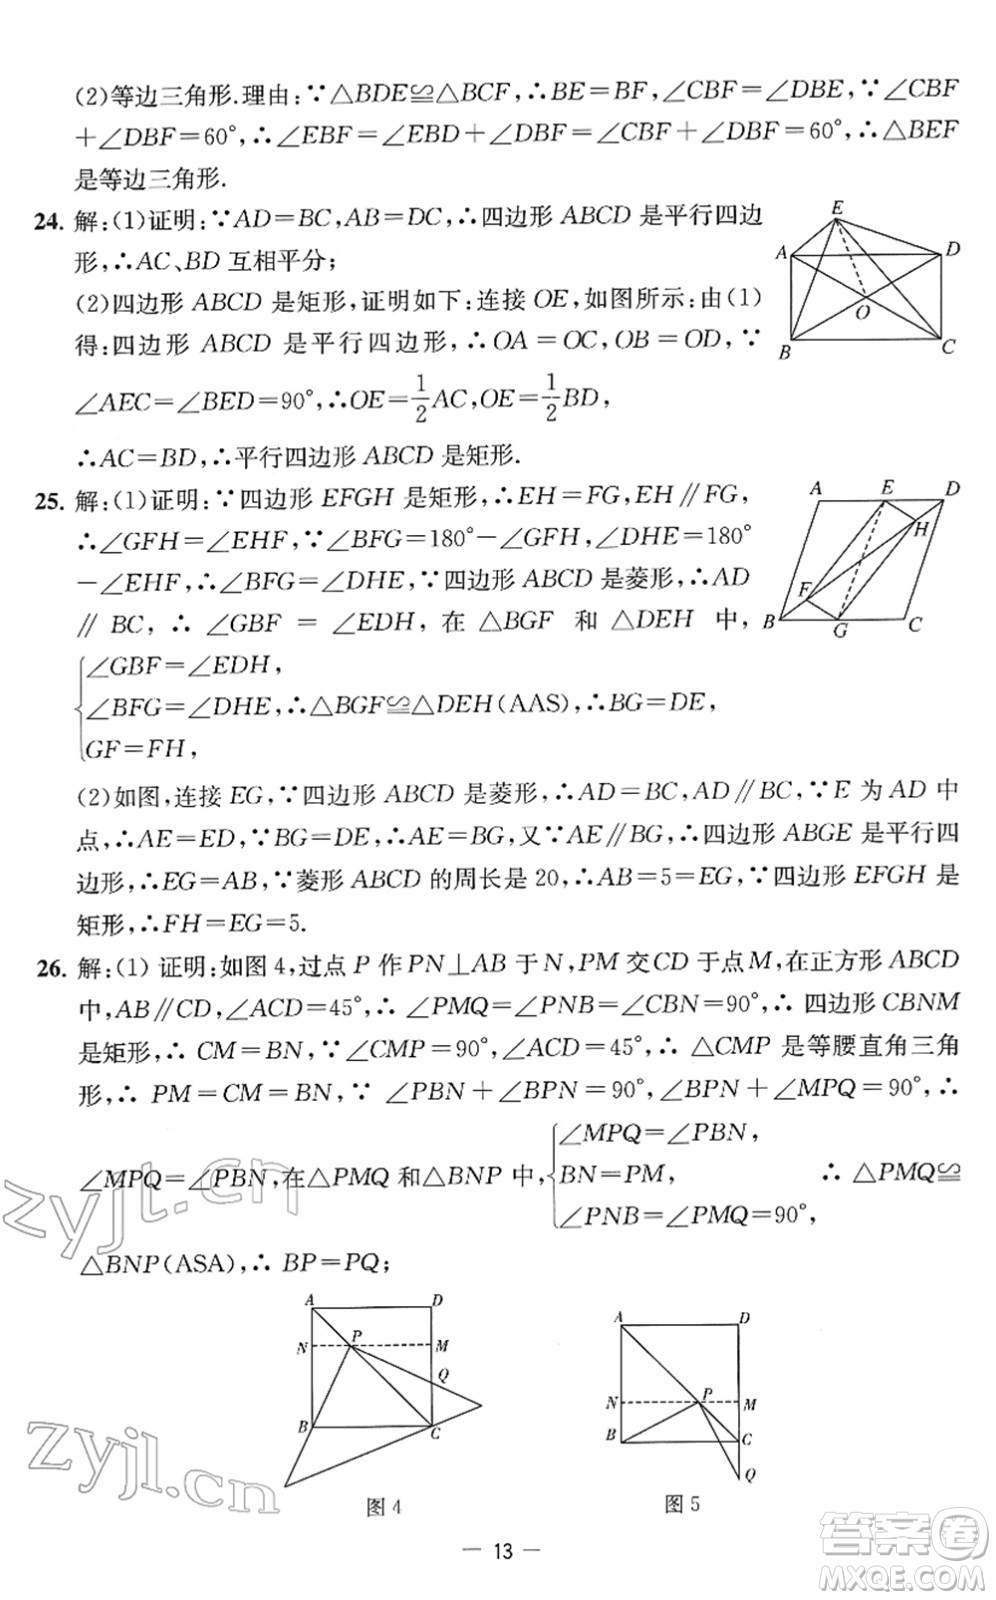 (2)等边三角形.理由:∵△BDE≌△BCF,∴BE=BF,∠CBF=∠DBE,∵∠CBF
+∠DBF=60°,∴∠EBF=∠EBD+∠DBF=∠CBF+∠DBF=60°,∴△BEF
是等边三角形.
24. 解:(1)证明:∵AD=BC,AB=DC,∴四边形ABCD是平行四边
形,∴AC、BD互相平分;
(2)四边形ABCD是矩形,证明如下:连接OE,如图所示:由(1)
得:四边形ABCD是平行四边形,∴OA=OC,OB=OD,∵
∠AEC=∠BED=90°,∴OE=1/2AC,OE=1/2BD,
∴AC=BD,∴平行四边形ABCD是矩形.
E
A
D
O
B
C
25. 解:(1)证明:∵四边形EFGH是矩形,∴EH=FG,EH∥FG,
∴∠GFH=∠EHF,∵∠BFG=180°-∠GFH,∠DHE=180°
-∠EHF,∴∠BFG=∠DHE,∵四边形ABCD是菱形,∴AD
∥BC,∴∠GBF=∠EDH,在△BGF和△DEH中,
∠GBF=∠EDH,
∠BFG=∠DHE,∴△BGF≌△DEH(AAS),∴BG=DE,
GF=FH,
A
E
D
H
F
B
G
C
(2)如图,连接EG,∵四边形ABCD是菱形,∴AD=BC,AD∥BC,∵E为AD中
点,∴AE=ED,∵BG=DE,∴AE=BG,又∵AE∥BG,∴四边形ABGE是平行四
边形,∴EG=AB,∵菱形ABCD的周长是20,∴AB=5=EG,∵四边形EFGH是
矩形,∴FH=EG=5.
26. 解:(1)证明:如图4,过点P作PN⊥AB于N,PM交CD于点M,在正方形ABCD
中,AB∥CD,∠ACD=45°,∴∠PMQ=∠PNB=∠CBN=90°,∴四边形CBNM
是矩形,∴CM=BN,∵∠CMP=90°,∠ACD=45°,∴△CMP是等腰直角三角
形,∴PM=CM=BN,∵∠PBN+∠BPN=90°,∠BPN+∠MPQ=90°,∴
∠MPQ=∠PBN,
∠MPQ=∠PBN,在△PMQ和△BNP中, BN=PM, ∴△PMQ≌
∠PNB=∠PMQ=90°,
△BNP(ASA),∴BP=PQ;
A
D
N
P
M
Q
B
C
图4
A
D
N
P
M
B
C
Q
图5
— 13 —
zyjl.cn
zyjl.cn
答案卷
MXQE.COM